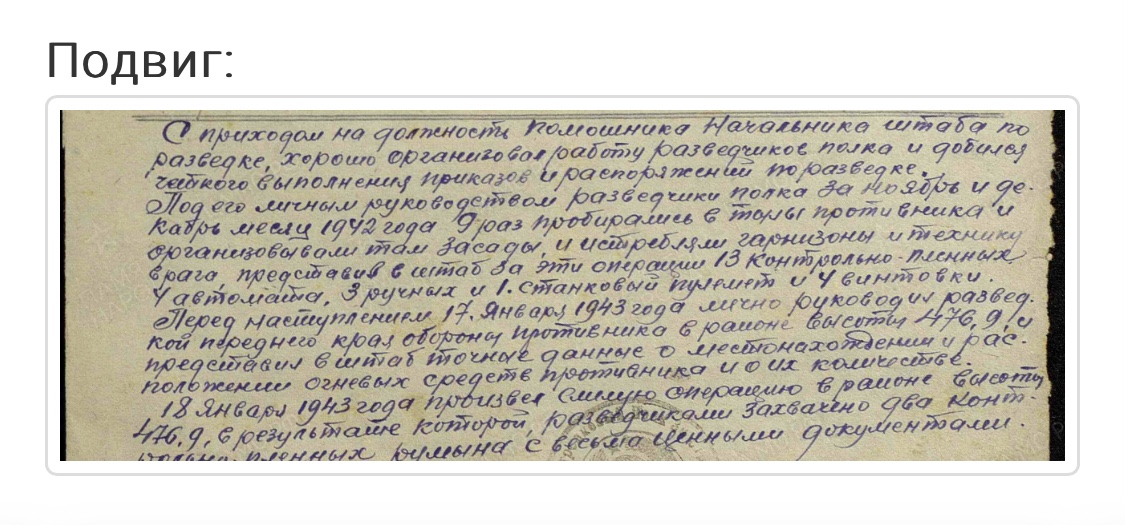 Подвиг:
С приходом на должность помошника Начальника штаба по
разведке, хорошо организовал работу разведчиков полка и добился
чёткого выполнения приказов и распоряжений по разведке.
Под его личным руководством разведчики полка за ноябрь и де-
кабрь месяц 1942 года 9 раз пробирались в тылы противника и
организовывали там засады, и истребляли гарнизоны и технику
врага, представив в штаб за эти операции 13 контрольно-пленных
4 автомата, 3 ручных и 1. станковый пулемет и 4 винтовки.
Перед наступлением 17. Января 1943 года лично руководил развед-
кой переднего края обороны противника в районе высоты 476,9, и
представил в штаб точные данные о местонахождении и рас-
положении огневых средств противника и о их количестве.
18 Января 1943 года произвел смелую операцию в районе высоты
476,9, в результате которой, разведчиками захвачено два конт-
рольно-пленных румына с весьма ценными документами.